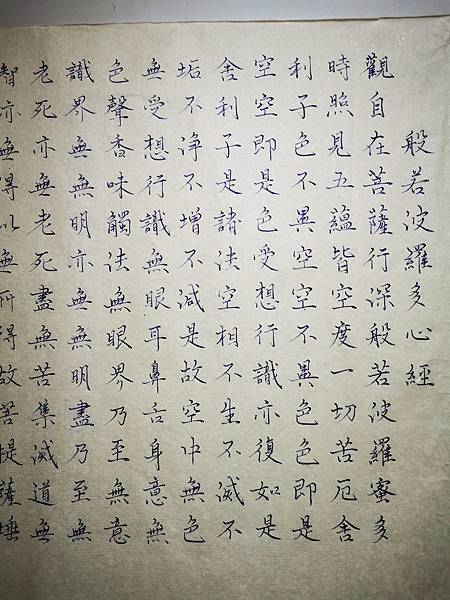 般若波羅多心經
觀自在菩薩行深般若波羅蜜多
時照見五蘊皆空度一切苦厄舍
利子色不異空空不異色色即是
空空即是色受想行識亦復如是
舍利子是諸法空相不生不滅不
垢不淨不增不減是故空中無色
無受想行識無眼耳鼻舌身意無
色聲香味觸法無眼界乃至無意
識界無無明亦無無明盡乃至無
老死亦無老死盡無苦集滅道無
智亦無得以無所得故菩提薩埵